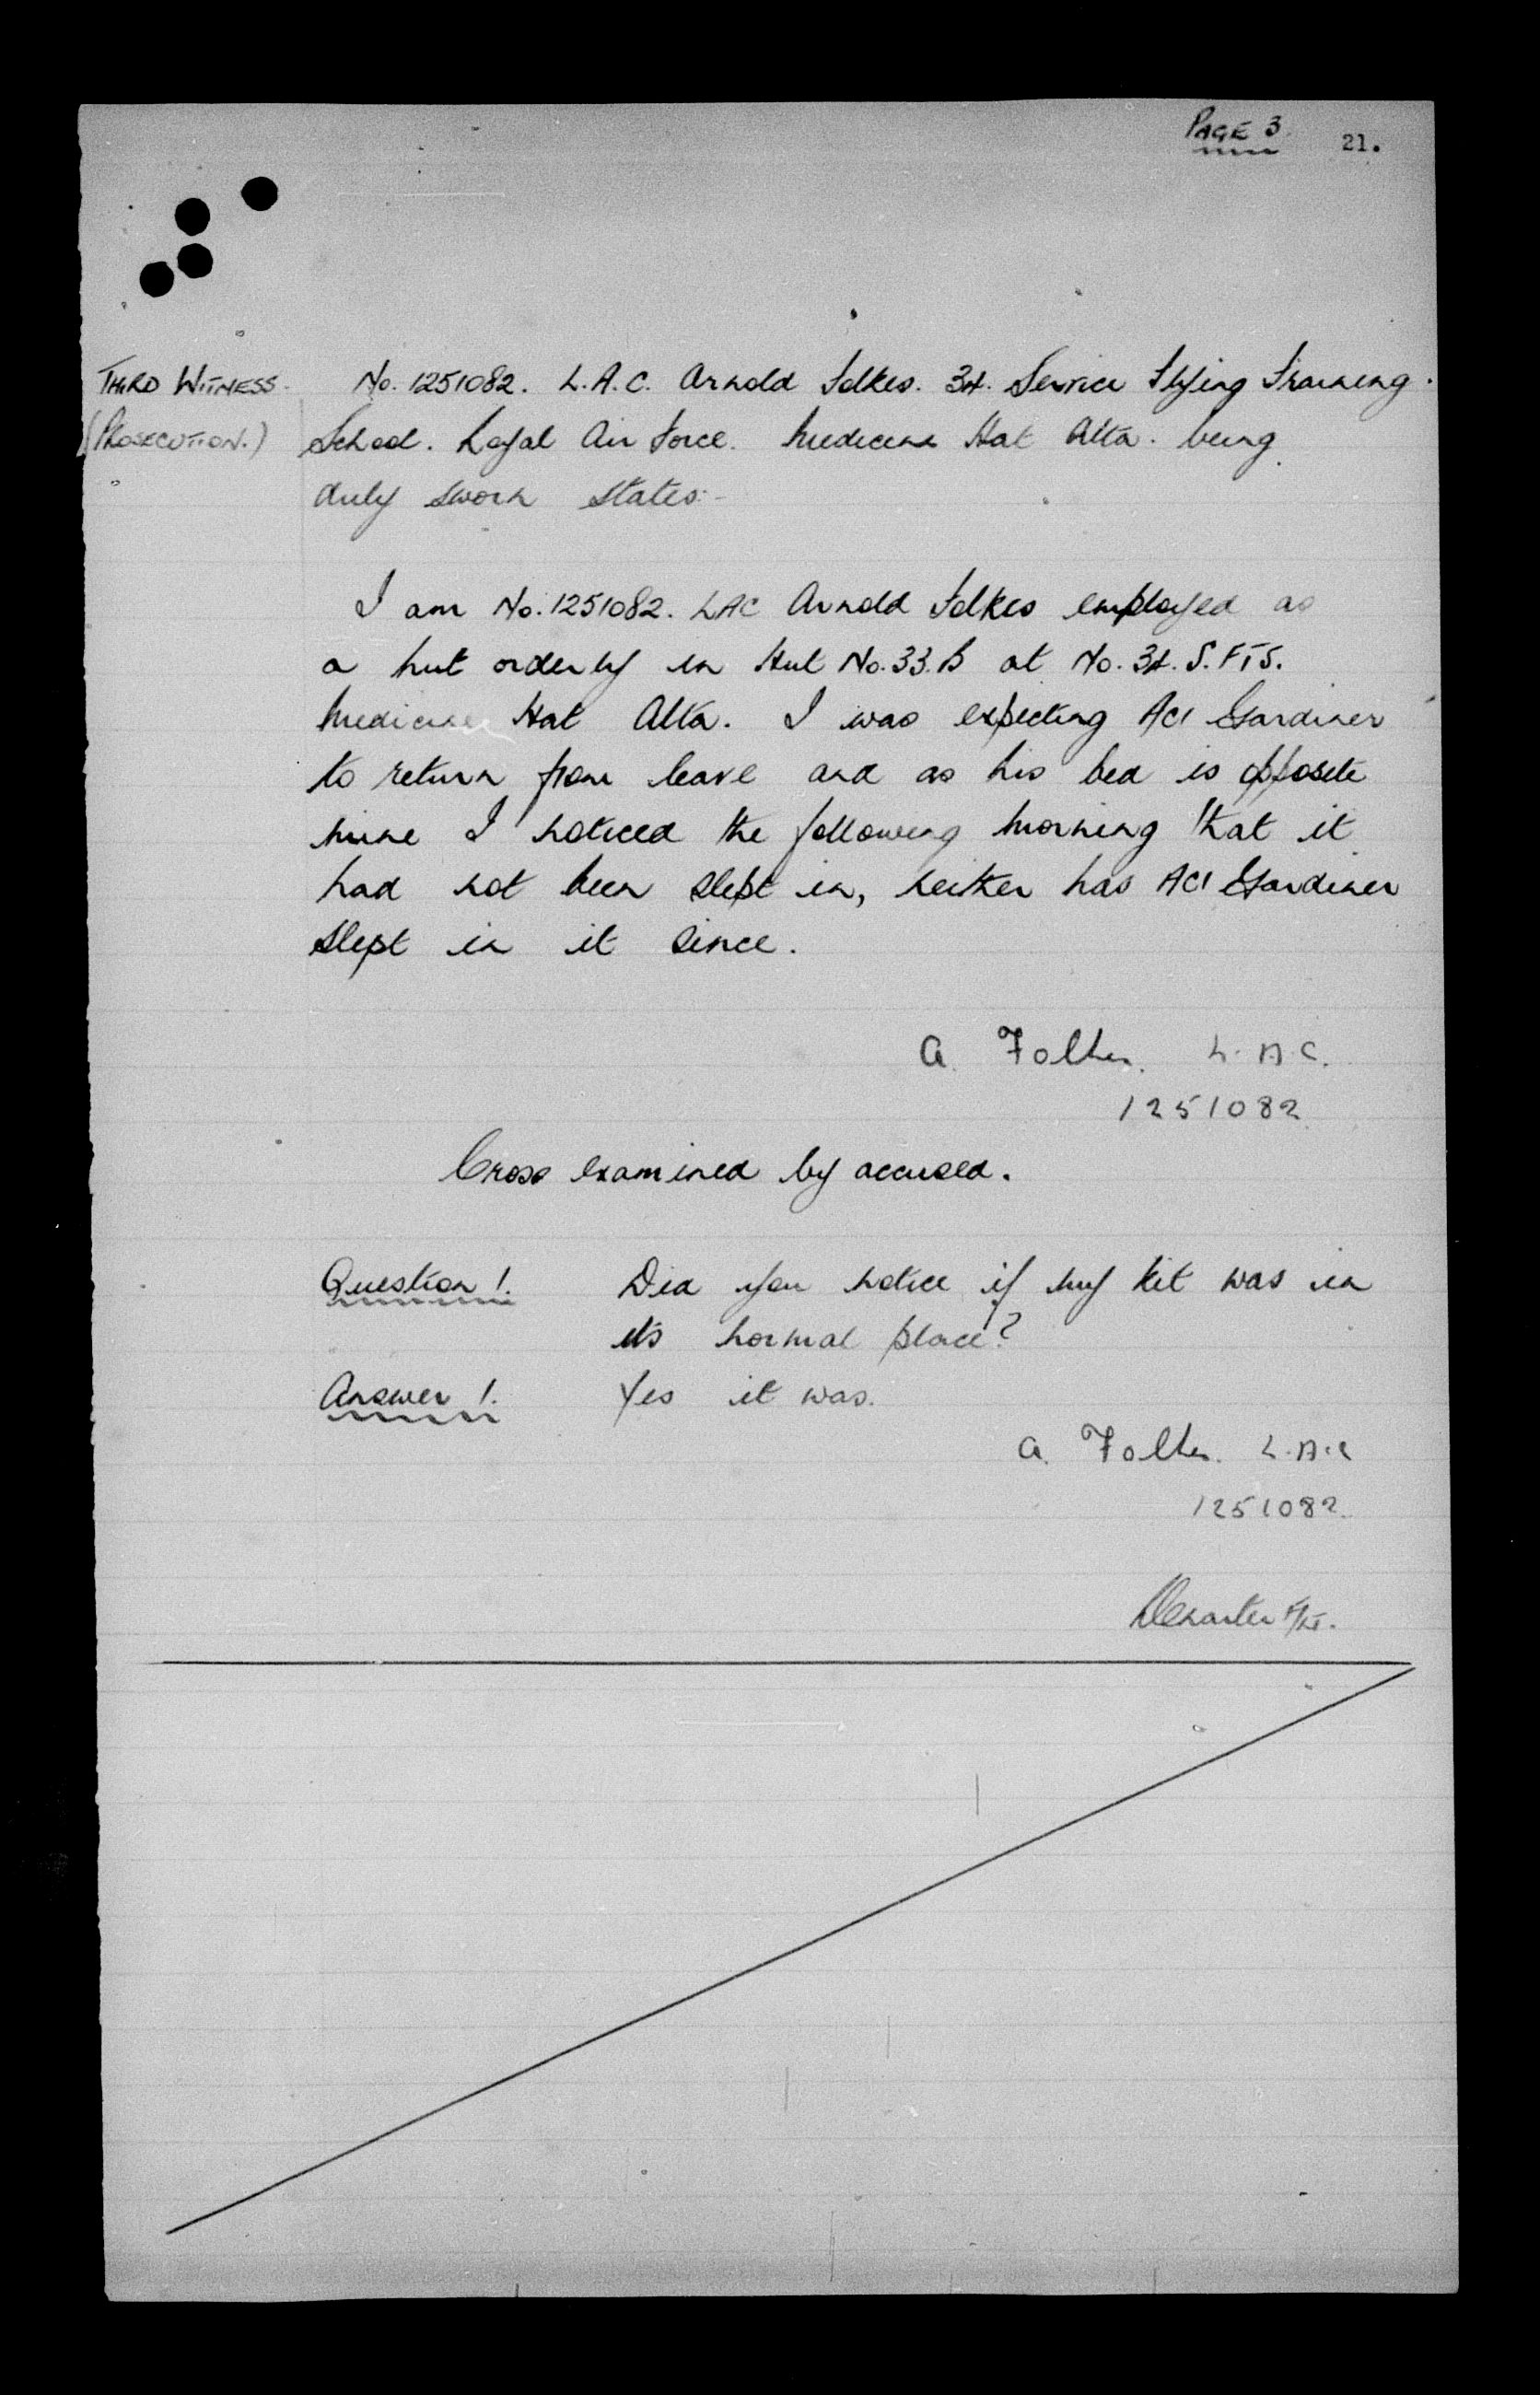 PAGE 3 21.
THIRD WITNESS. No. 1251082. L.A.C. Arnold Folkes. 34. Service Flying Training.
(PROSECUTION.) School. Royal Air Force. Medicine Hat Alta. being
duly sworn states:-
I am No. 1251082. LAC Arnold Folkes employed as
a hut orderly in Hut No. 33.B at No. 34. S.F.T.S.
Medicine Hat Alta. I was expecting AC1 Gardiner
to return from leave and as his bed is opposite
mine I noticed the following morning that it
had not been slept in, neither has AC1 Gardiner
slept in it since.
A. Folkes. L.A.C.
1251082
Cross examined by accused.
Question 1. Did you notice if my kit was in
its normal place?
Answer 1. Yes it was.
A. Folkes. L.A.C
1251082.
F/Lt.